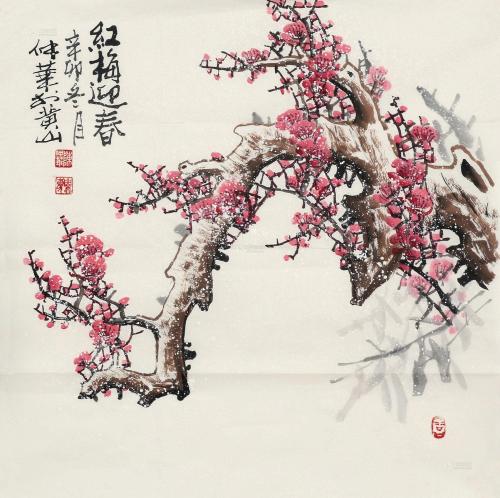 紅梅迎春
辛卯冬月
仲華於黄山